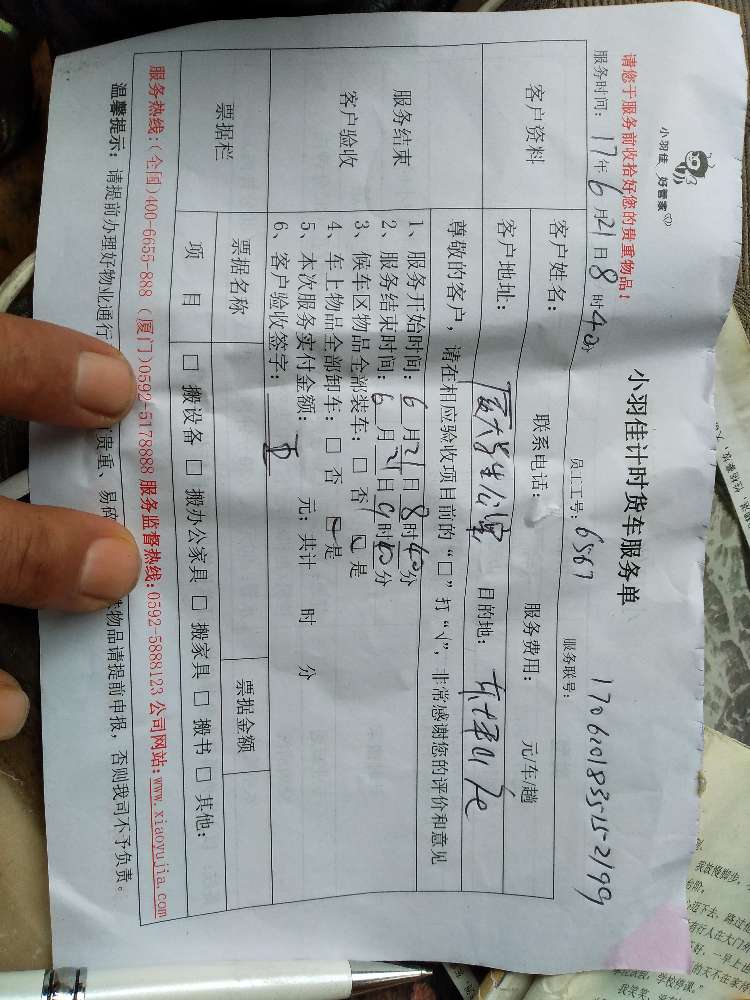 小羽佳 好管家
小羽佳计时货车服务单
请您于服务前收拾好您的贵重物品！
员工工号：6567 服务联号：
服务时间：17年6月21日8时40分
客户资料
客户姓名： 联系电话： 服务费用： 元/车/趟
客户地址：厦大学生公寓 目的地：
服务结束
客户验收
尊敬的客户，请在相应验收项目前的“□”打“√”，非常感谢您的评价和意见
1、服务开始时间：6月21日8时40分
2、服务结束时间：6月21日9时40分
3、候车区物品全部装车：□否 □是
4、车上物品全部卸车：□否 □是
5、本次服务实付金额： 元；共计 时 分
6、客户验收签字：
票据栏
票据名称 票据金额
项目 □搬设备 □搬办公家具 □搬家具 □搬书 □其他：
服务热线：(全国)400-6655-888 (厦门)0592-5178888 服务监督热线：0592-5888123 公司网站：www.xiaoyujia.com
温馨提示：请提前办理好物业通行 贵重、易碎 物品请提前申报，否则我司不予负责。
我放慢脚步，
下去，路过
有行人在大门外
好，一早上
的天不在家
学校停课。”
我笑笑，